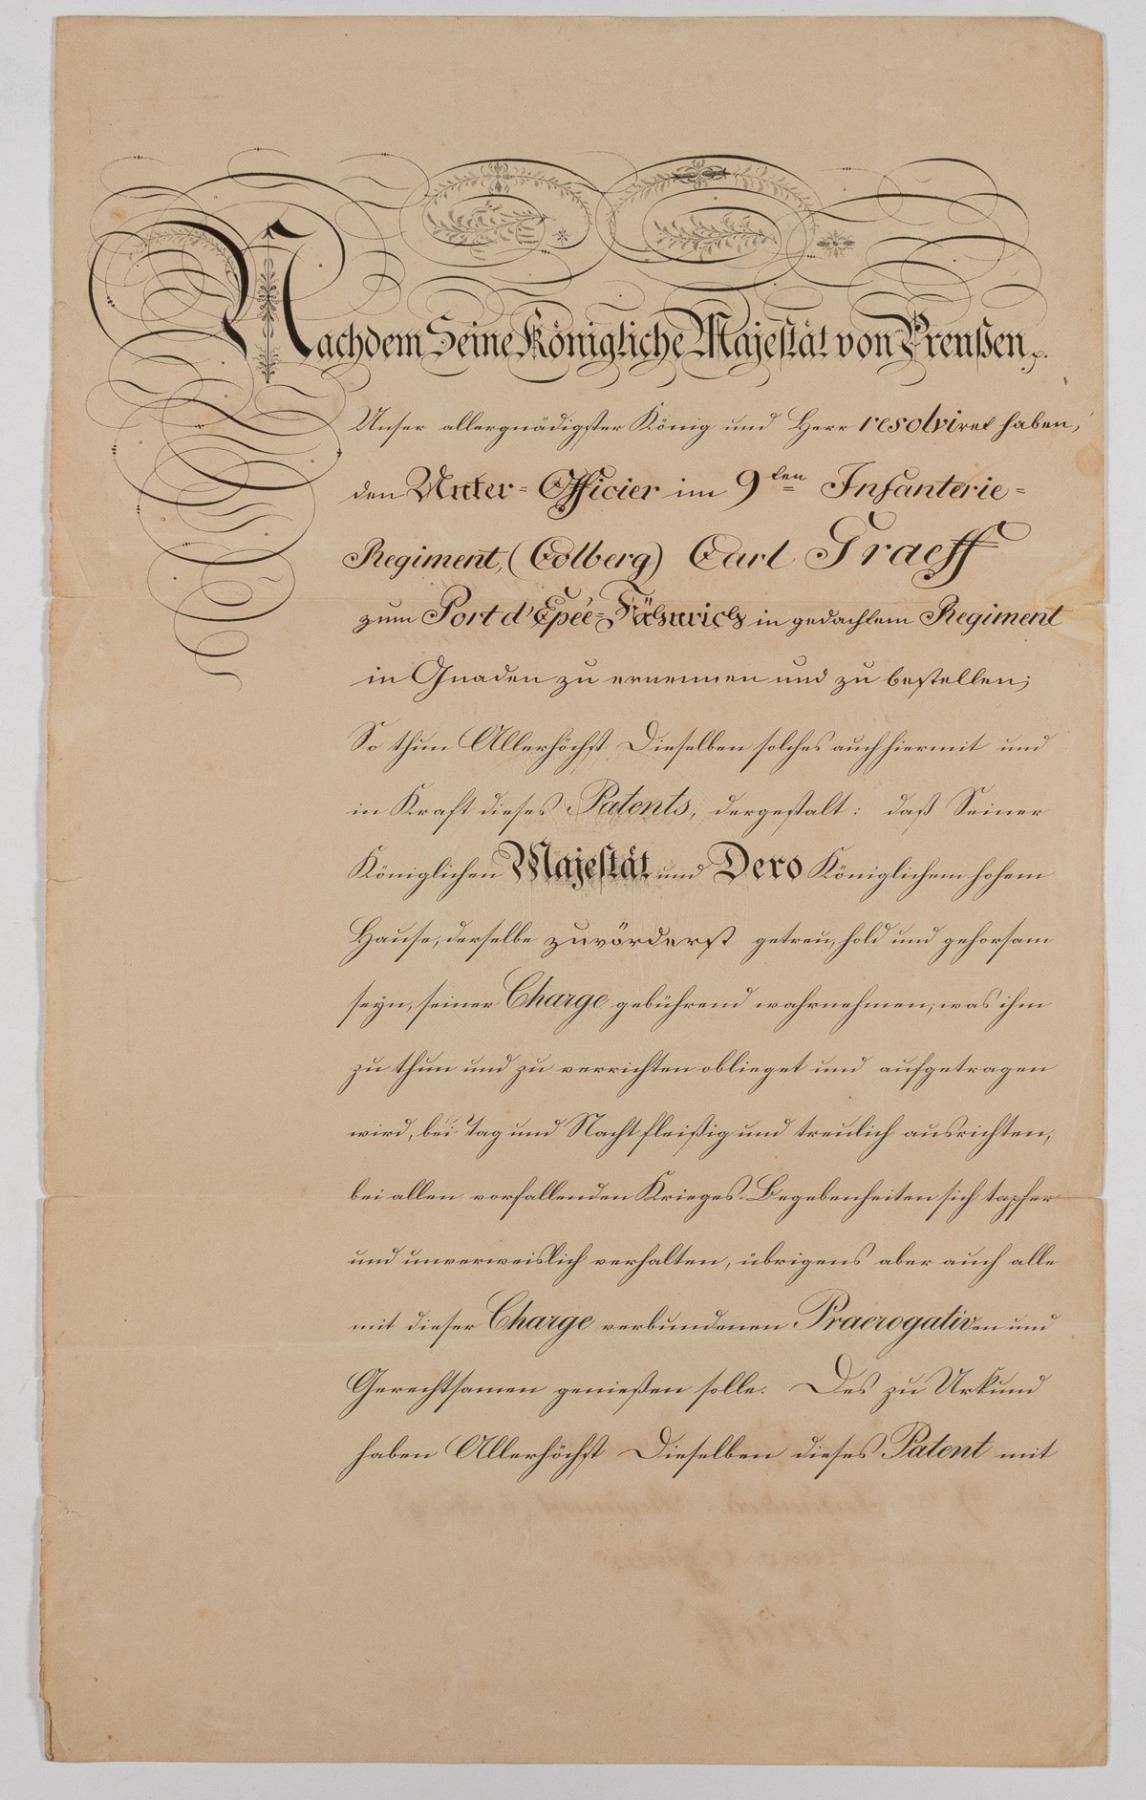 Nachdem Seine Königliche Majestät von Preußen p.
Unser allergnädigster König und Herr resolviret haben,
den Unter=Officier im 9ten Infanterie=
Regiment, (Colberg) Carl Graeff
zum Port d'Epée=Fähnrich in gedachtem Regiment
in Gnaden zu ernennen und zu bestellen;
So thun Allerhöchst Dieselben solches auch hiermit und
in Kraft dieses Patents, dergestalt: daß Seiner
Königlichen Majestät und Dero Königlichem hohem
Hause, derselbe zuvörderst getreu, hold und gehorsam
seyn, seiner Charge gebührend wahrnehmen, was ihm
zu thun und zu verrichten oblieget und aufgetragen
wird, bei Tag und Nacht fleißig und treulich ausrichten,
bei allen vorfallenden Krieges-Begebenheiten sich tapfer
und unverweislich verhalten, übrigens aber auch alle
mit dieser Charge verbundenen Praerogativen und
Gerechtsamen genießen solle. Des zu Urkund
haben Allerhöchst Dieselben dieses Patent mit